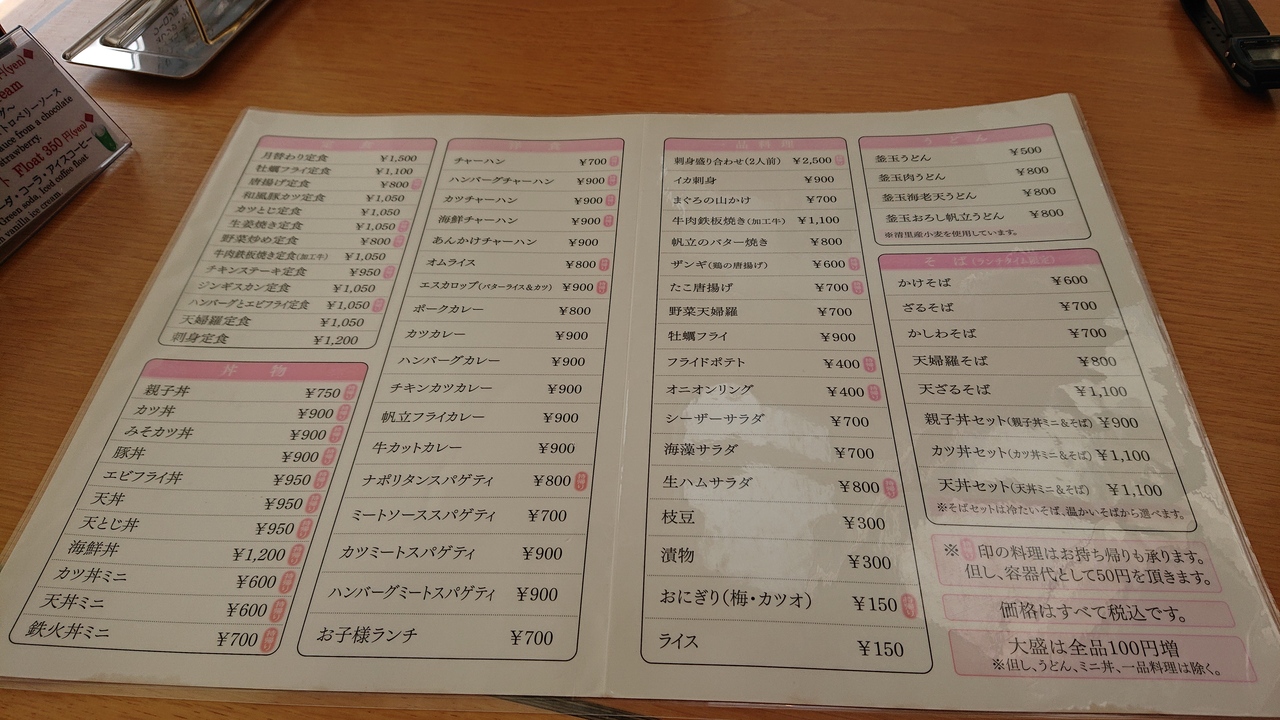 円(yen)◆
トロベリーソース
uce from a chocolate
strawberry.
Float 350 円(yen)◆
ーダ・コーラ・アイスコーヒー
Green soda, Iced coffee float
vanilla ice cream
定食
月替わり定食 ¥1,500
牡蠣フライ定食 ¥1,100
唐揚げ定食 ¥800
和風豚カツ定食 ¥1,050
カツとじ定食 ¥1,050
生姜焼き定食 ¥1,050
野菜炒め定食 ¥800
牛肉鉄板焼き定食(加工牛) ¥1,050
チキンステーキ定食 ¥950
ジンギスカン定食 ¥1,050
ハンバーグとエビフライ定食 ¥1,050
天婦羅定食 ¥1,050
刺身定食 ¥1,200
丼物
親子丼 ¥750
カツ丼 ¥900
みそカツ丼 ¥900
豚丼 ¥900
エビフライ丼 ¥950
天丼 ¥950
天とじ丼 ¥950
海鮮丼 ¥1,200
カツ丼ミニ ¥600
天丼ミニ ¥600
鉄火丼ミニ ¥700
洋食
チャーハン ¥700
ハンバーグチャーハン ¥900
カツチャーハン ¥900
海鮮チャーハン ¥900
あんかけチャーハン ¥900
オムライス ¥800
エスカロップ(バターライス&カツ) ¥900
ポークカレー ¥800
カツカレー ¥900
ハンバーグカレー ¥900
チキンカツカレー ¥900
帆立フライカレー ¥900
牛カットカレー ¥900
ナポリタンスパゲティ ¥800
ミートソーススパゲティ ¥700
カツミートスパゲティ ¥900
ハンバーグミートスパゲティ ¥900
お子様ランチ ¥700
一品料理
刺身盛り合わせ(2人前) ¥2,500
イカ刺身 ¥900
まぐろの山かけ ¥700
牛肉鉄板焼き(加工牛) ¥1,100
帆立のバター焼き ¥800
ザンギ(鶏の唐揚げ) ¥600
たこ唐揚げ ¥700
野菜天婦羅 ¥700
牡蠣フライ ¥900
フライドポテト ¥400
オニオンリング ¥400
シーザーサラダ ¥700
海藻サラダ ¥700
生ハムサラダ ¥800
枝豆 ¥300
漬物 ¥300
おにぎり(梅・カツオ) ¥150
ライス ¥150
うどん
釜玉うどん ¥500
釜玉肉うどん ¥800
釜玉海老天うどん ¥800
釜玉おろし帆立うどん ¥800
※清里産小麦を使用しています。
そば(ランチタイム限定)
かけそば ¥600
ざるそば ¥700
かしわそば ¥700
天婦羅そば ¥800
天ざるそば ¥1,100
親子丼セット(親子丼ミニ&そば) ¥900
カツ丼セット(カツ丼ミニ&そば) ¥1,100
天丼セット(天丼ミニ&そば) ¥1,100
※そばセットは冷たいそば、温かいそばから選べます。
※ 印の料理はお持ち帰りも承ります。
但し、容器代として50円を頂きます。
価格はすべて税込です。
大盛は全品100円増
※但し、うどん、ミニ丼、一品料理は除く。